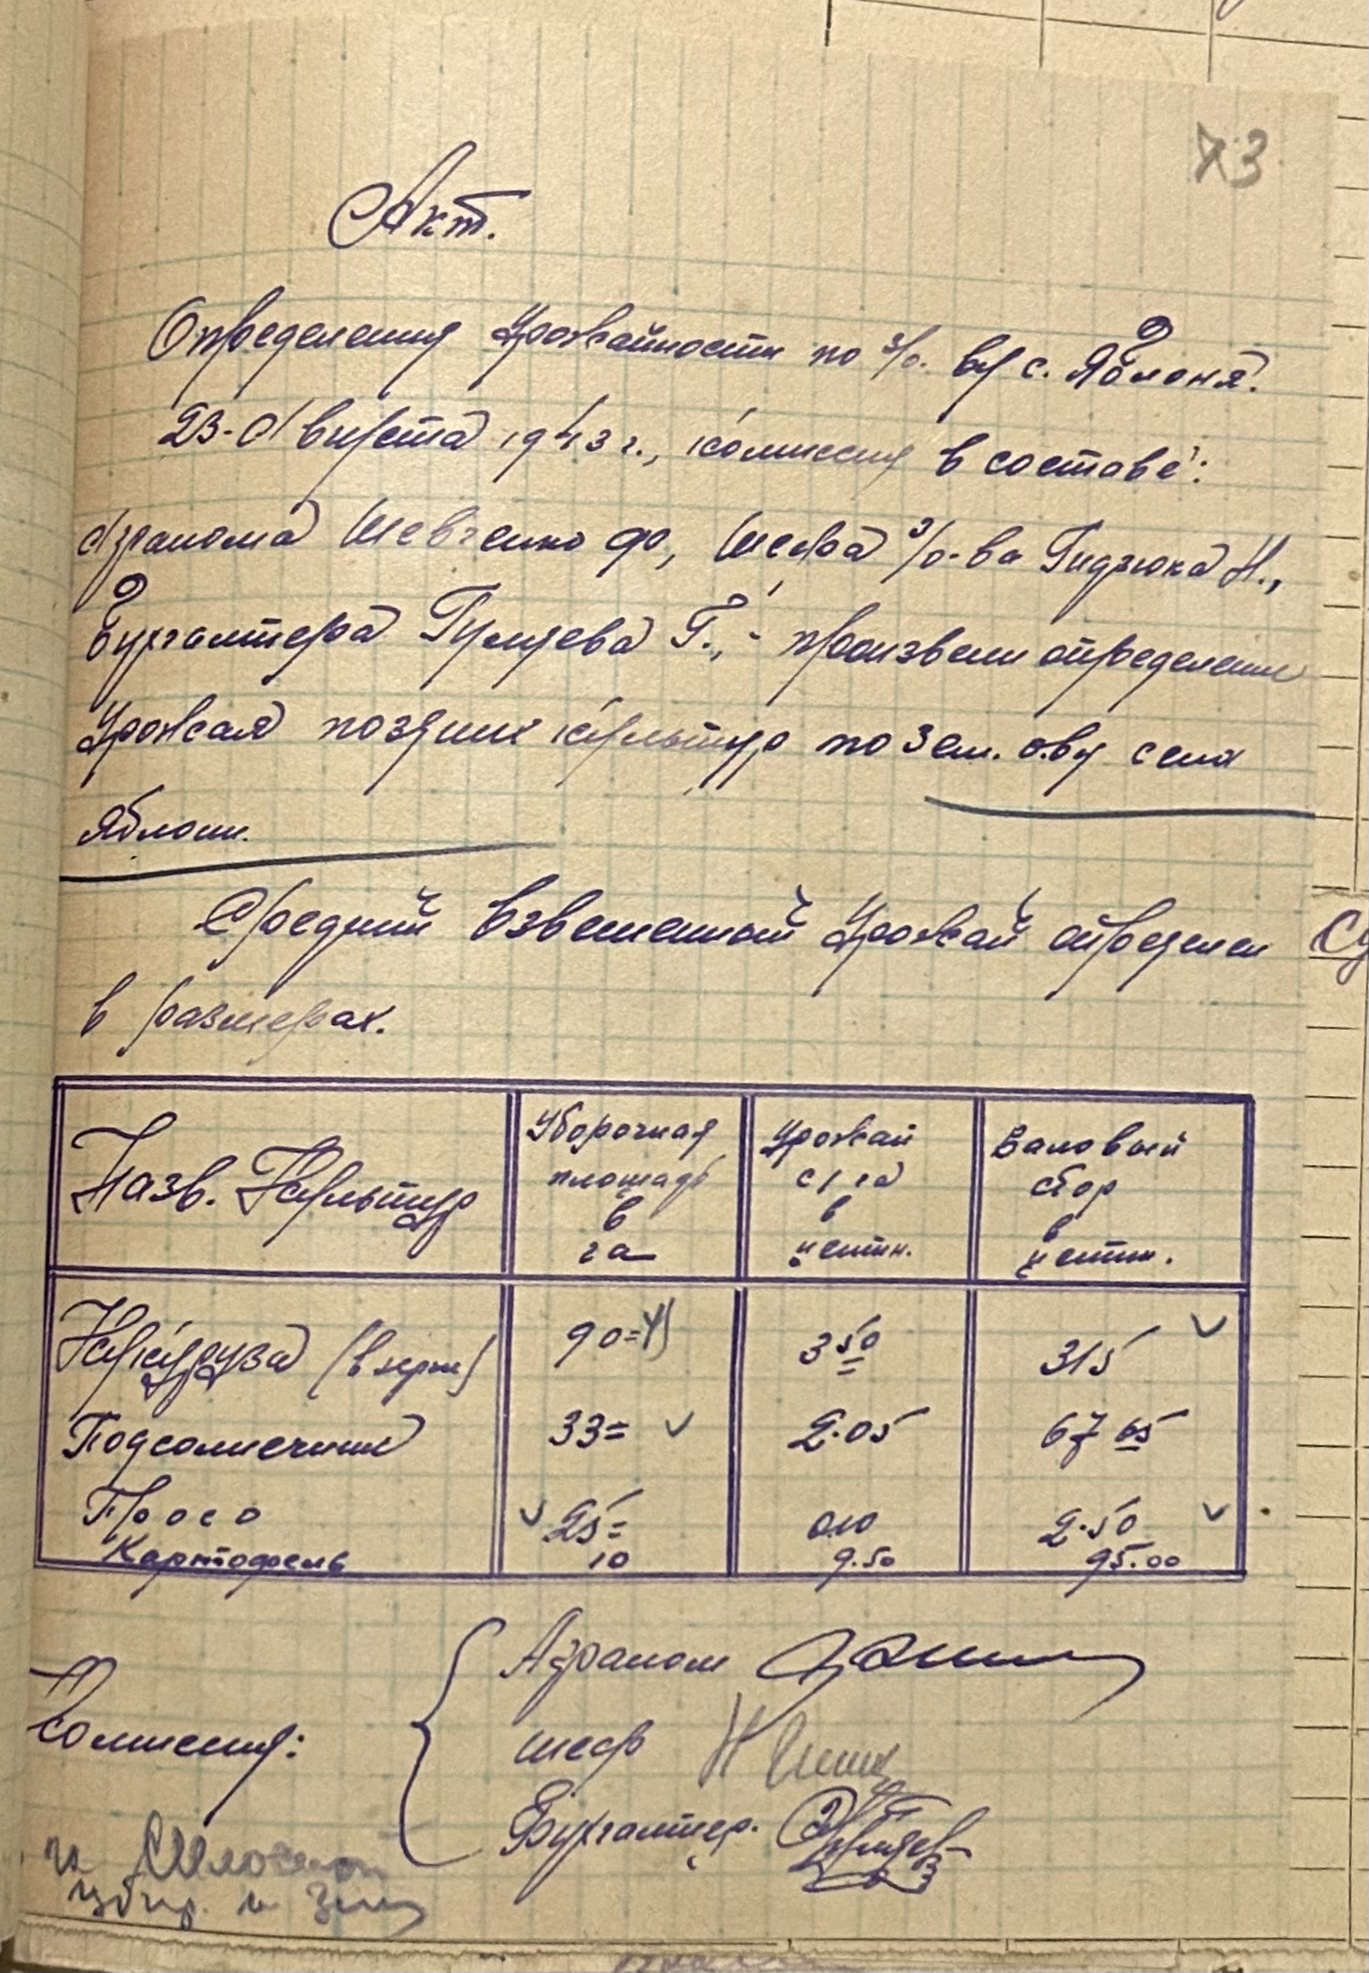 73
Акт.
Определения урожайности по з/о. ву с. Яблоня.
23-Августа 1943 г., комиссия в составе:
Агранома Шевченко Ф, Шефа з/о-ва Гидзюка Н.,
Бухгалтера Гуляева Г., - произвели определение
урожая поздних культур по зем. о.ву села
Яблони.
Средний взвешенный урожай определен
в размерах.
Назв. Культур Уборочная площадь в га Урожай с 1 га в центн. Валовый сбор в центн.
Кукуруза (в зерне) 90= 3 50 315
Подсолнечник 33= 2.05 67 65
Просо 25= 010 2.50
Картофель 10 9.50 95.00
Комиссия:
Аграном
шеф
Бухгалтер. Гуляев